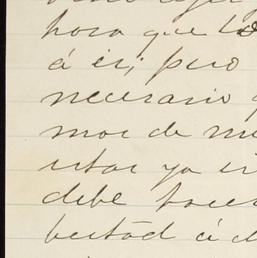 hora que to
á ir; pero
necesario
mos de m
estar ya
debe hacer
bertad á d